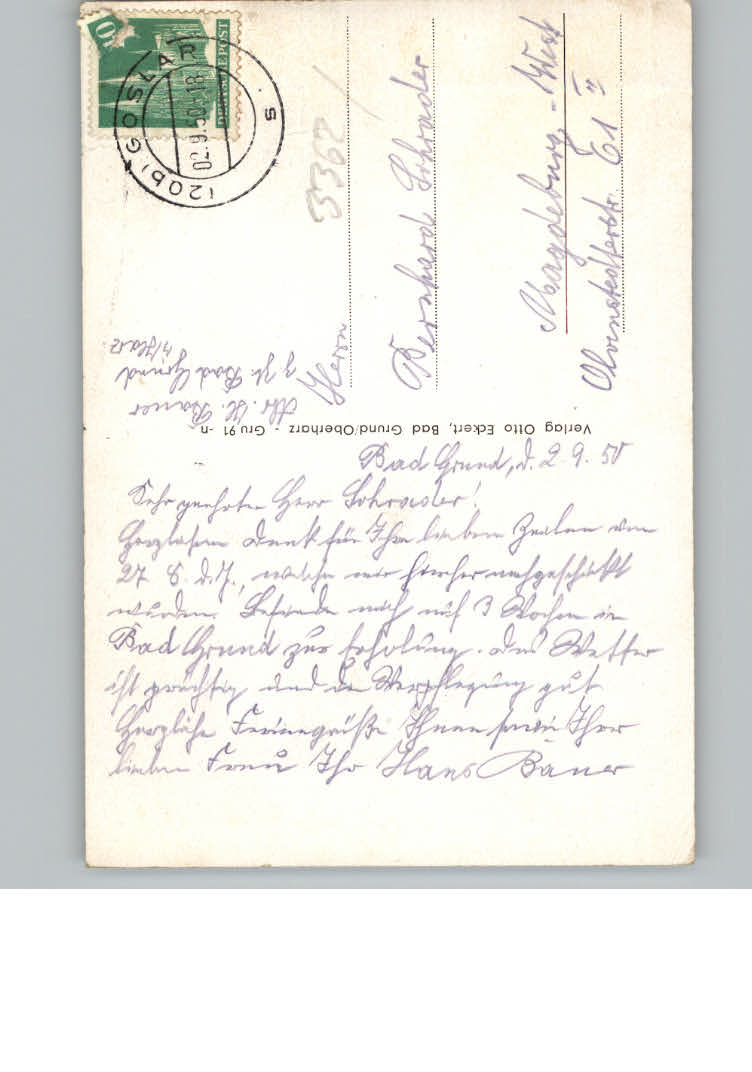 Bad Grund, d. 2.9.50
Sehr geehrter Herr Schrader!
Herzlichen Dank für Ihre lieben Zeilen vom
27. 8. d. J., welche mir hierher nachgeschickt
wurden. Befinde mich auf 3 Wochen in
Bad Grund zur Erholung. Das Wetter
ist prächtig und die Verpflegung gut
Herzliche Feriengrüße Ihnen sowie Ihrer
lieben Frau Ihr Hans Bauer
Verlag Otto Eckert, Bad Grund/Oberharz - Gru 91 -n
Abs. H. Bauer
z. Zt. Bad Grund
i/Harz
Herrn
Bernhard Schrader
Magdeburg-West
Olvenstedterstr. 61 II
3362
(20b) GOSLAR
02.9.50-18
s
DEUTSCHE POST
10